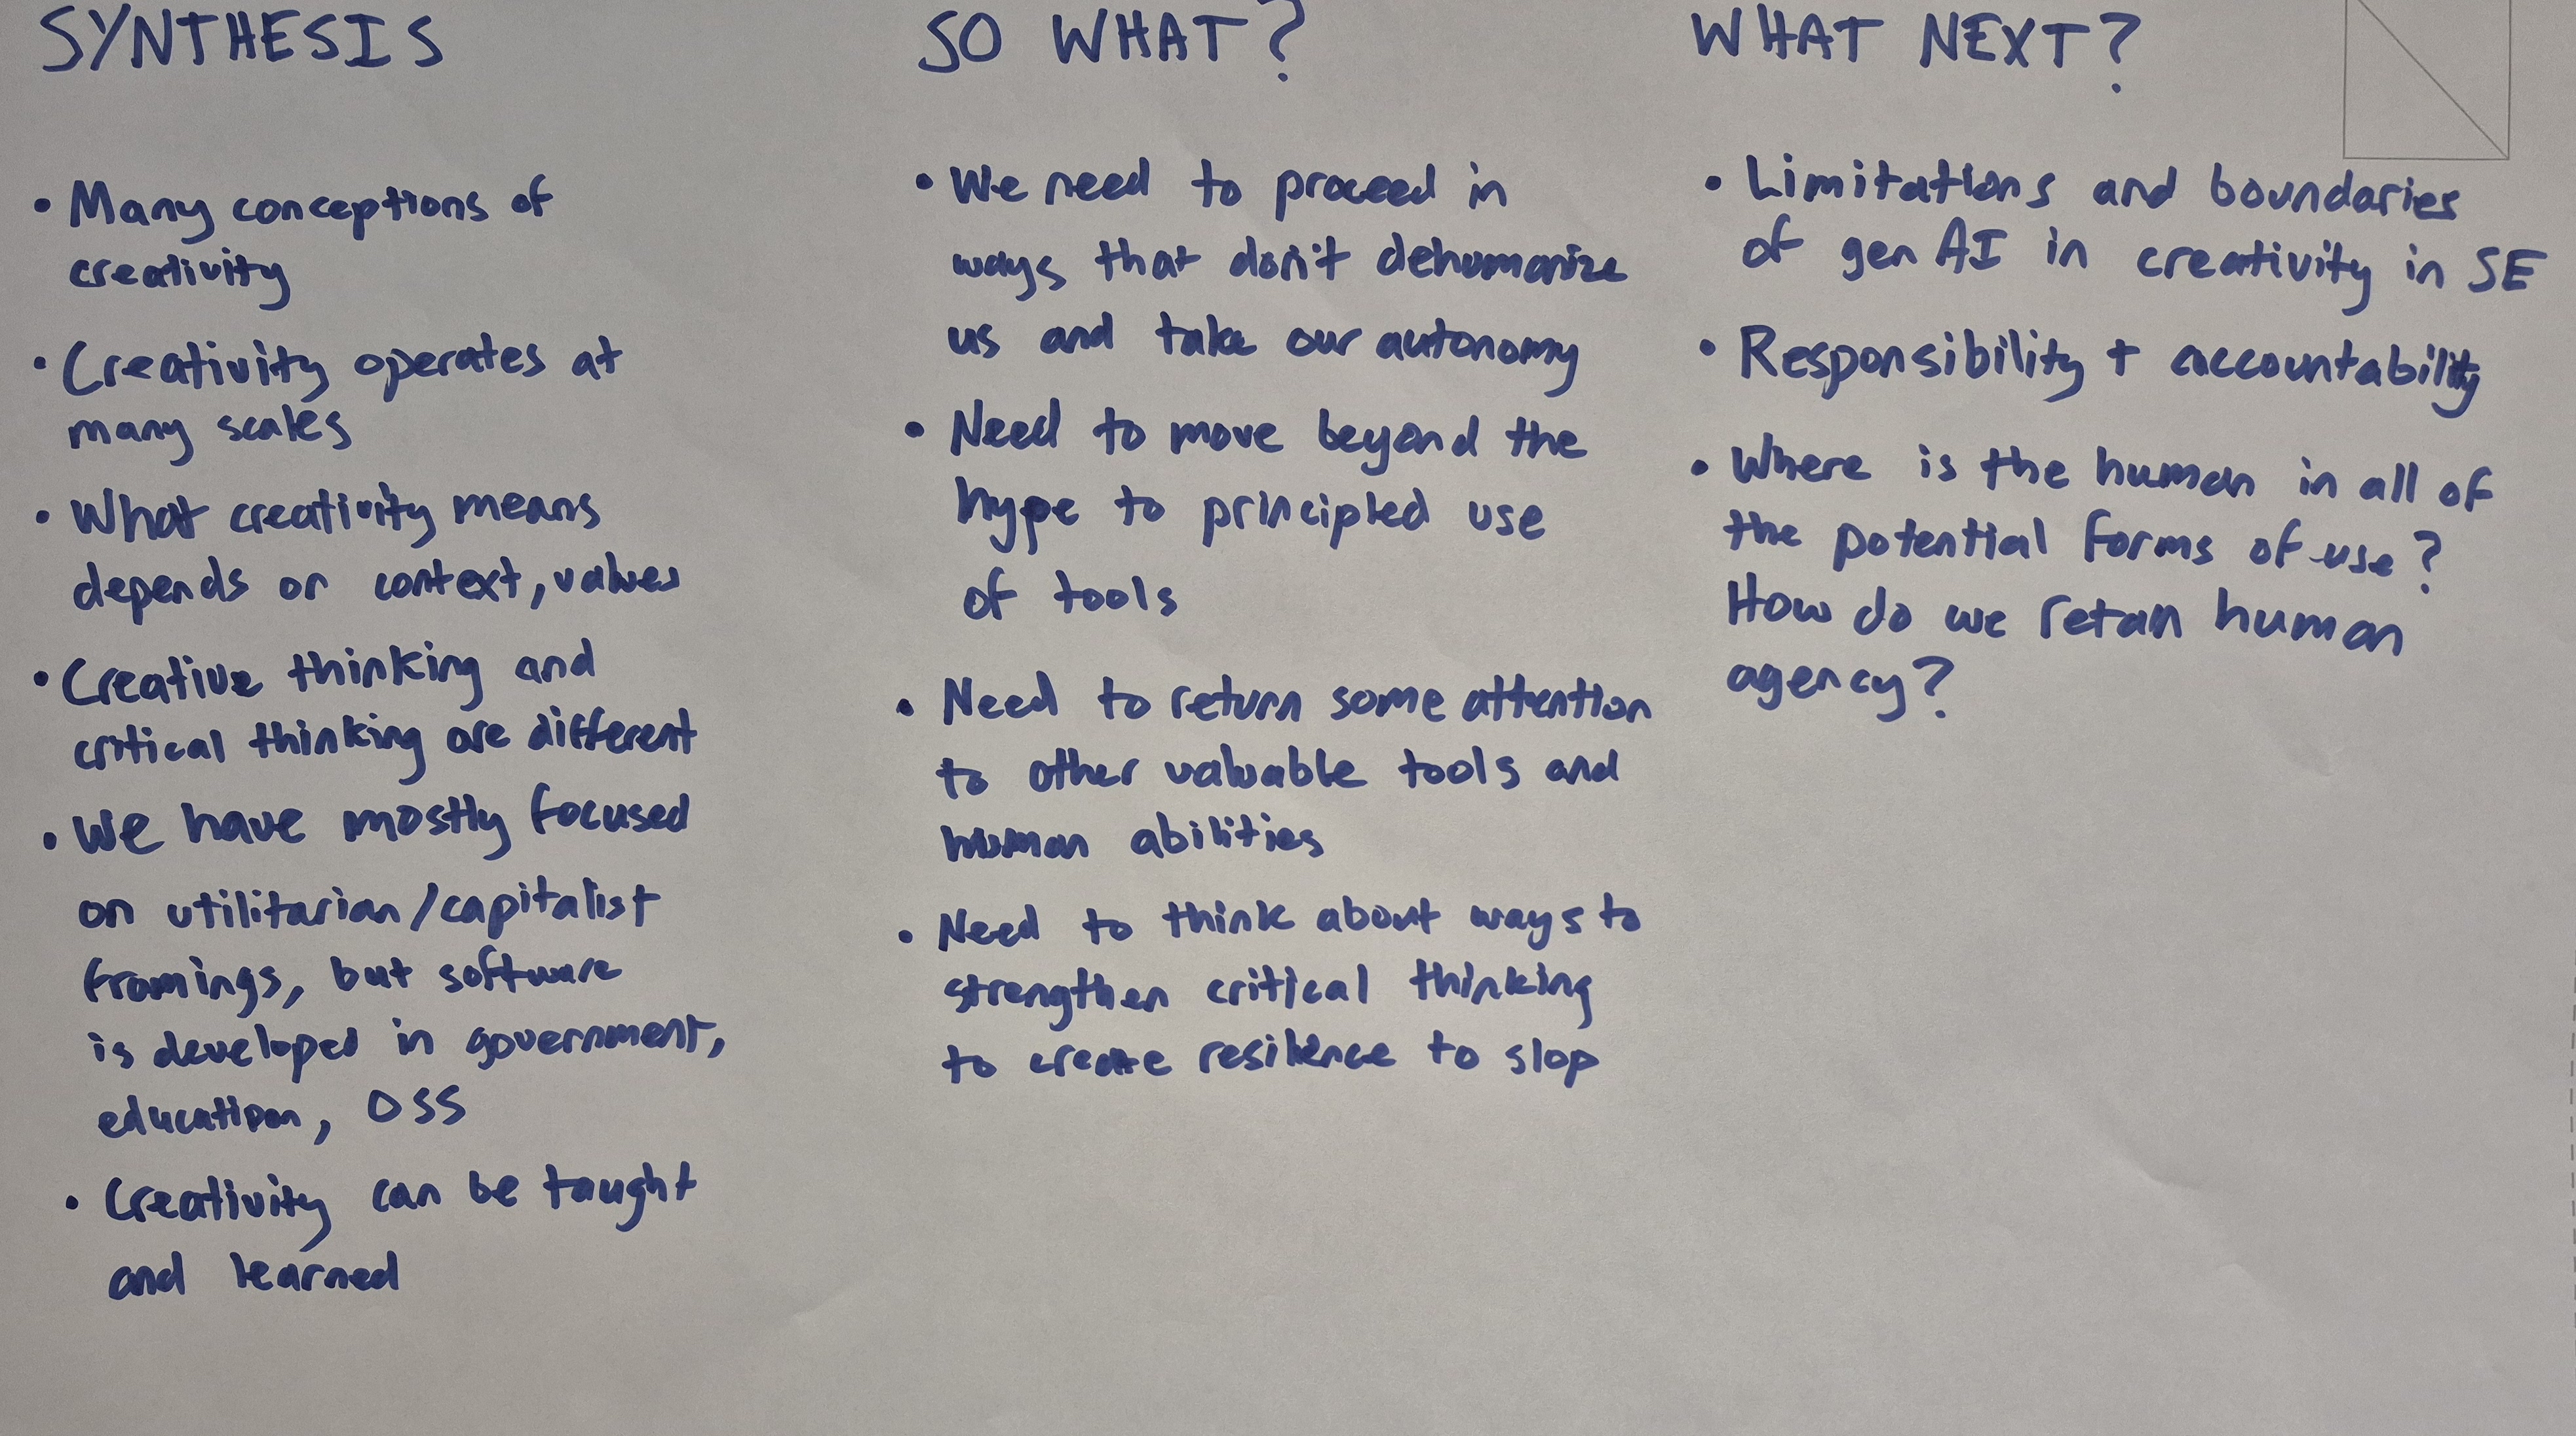 SYNTHESIS
• Many conceptions of
creativity
• Creativity operates at
many scales
• What creativity means
depends on context, values
• Creative thinking and
critical thinking are different
• We have mostly focused
on utilitarian/capitalist
framings, but software
is developed in government,
education, OSS
• Creativity can be taught
and learned
SO WHAT?
• We need to proceed in
ways that don't dehumanize
us and take our autonomy
• Need to move beyond the
hype to principled use
of tools
• Need to return some attention
to other valuable tools and
human abilities
• Need to think about ways to
strengthen critical thinking
to create resilience to slop
WHAT NEXT?
• Limitations and boundaries
of gen AI in creativity in SE
• Responsibility + accountability
• Where is the human in all of
the potential forms of use?
How do we retain human
agency?